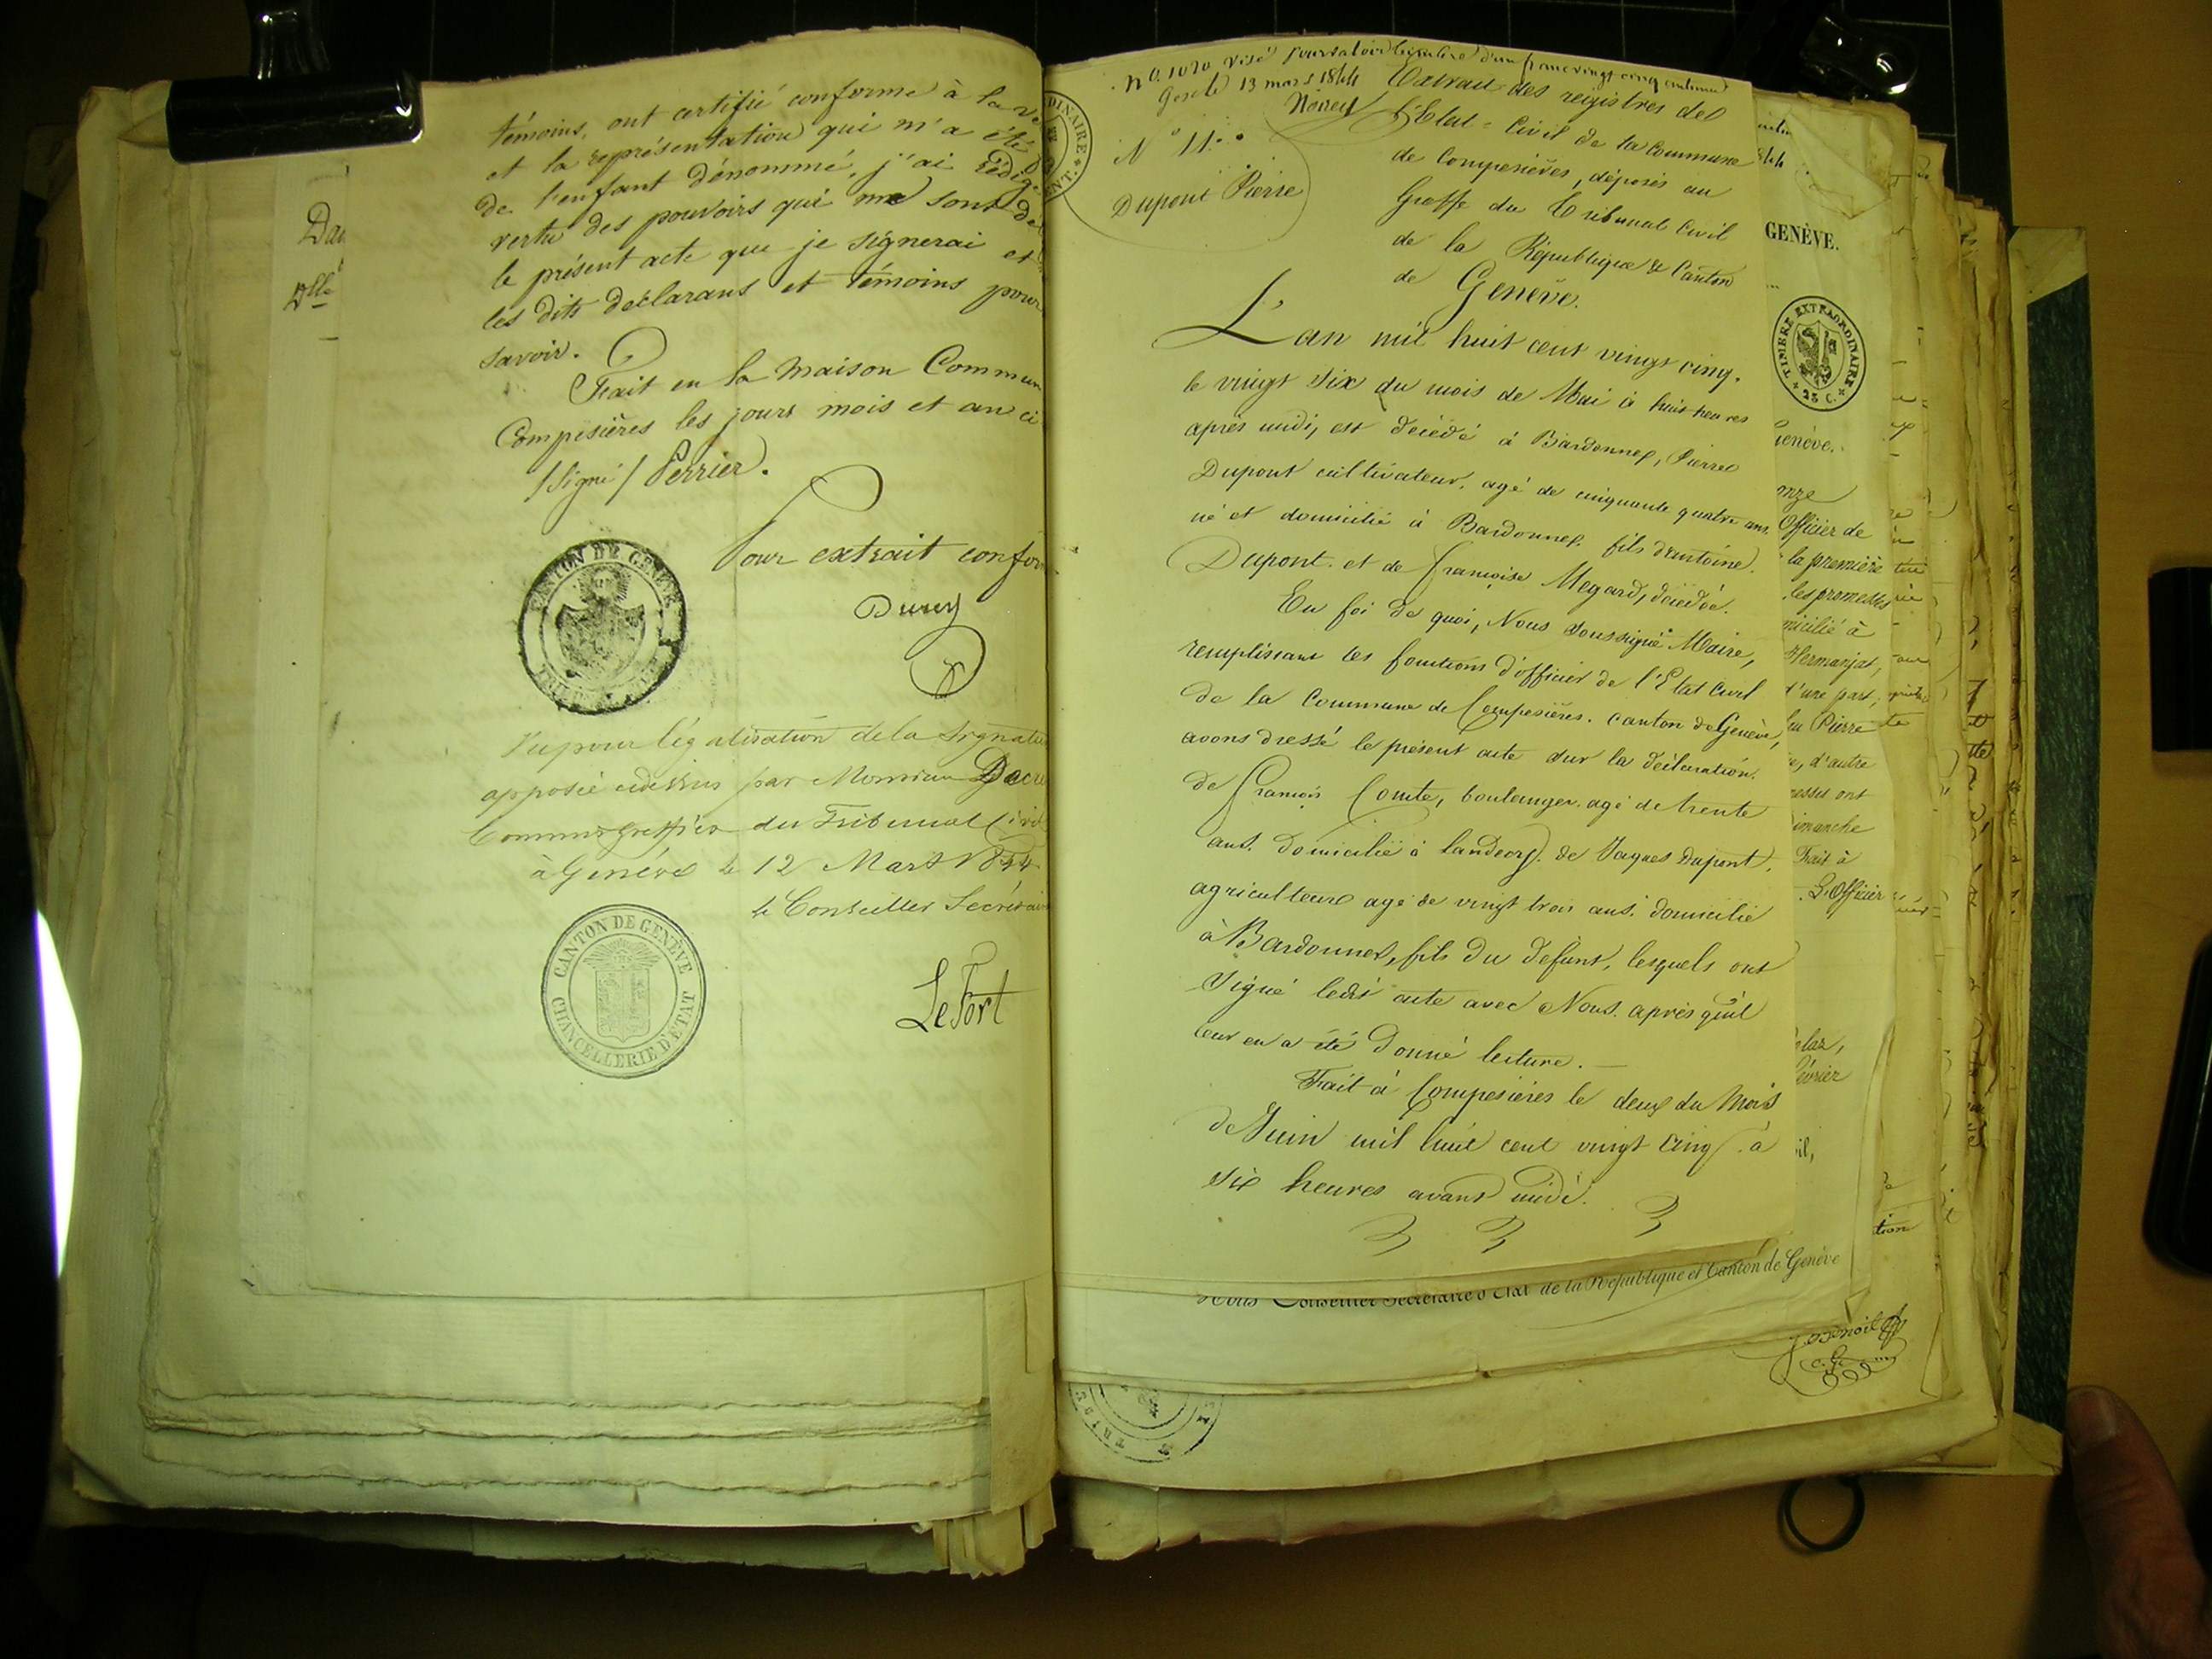 témoins, ont certifié conforme à la
et la représentation qui m'a été
de l'enfant dénommé, j'ai
vertu des pouvoirs qui me sont
le présent acte que je signerai et
les dits déclarans et témoins pour
savoir.
Fait en la Maison Commun
Compesières les jours mois et an ci
/Signé/ Perrier.
Pour extrait confor
CANTON DE GENÈVE
Vu pour légalisation de la Signatu
apposée ci dessus par Monsieur
Commis Greffier du Tribunal Civil
à Genève le 12 Mars 1844
le Conseiller Secrétaire
CANTON DE GENÈVE
CHANCELLERIE D'ETAT
LeFort
Dllé
No. 1020 Visé pour valoir timbre d'un franc vingt cinq centimes
Gex le 13 mars 1844
DINAIRE
N° 11.
Dupont Pierre
Extrait des registres de
l'Etat=Civil de la Commune
de Compesières, déposés au
Greffe du Tribunal Civil
de la République & Canton
de Genève.
L'an mil huit cent vingt cinq.
le vingt six du mois de Mai à huit heures
après midi, est décédé à Bardonnex, Pierre
Dupont cultivateur, agé de cinquante quatre ans.
né et domicilié à Bardonnex fils d'antoine
Dupont. et de françoise Megard, décédée.
En foi de quoi, Nous soussigné Maire,
remplissant les fonctions d'officier de l'Etat Civil
de la Commune de Compesières. canton de Genève,
avons dressé le présent acte sur la déclaration.
de François Comte, boulanger. agé de trente
ans. Domicilié à Landecy. de Jaques Dupont,
agriculteur agé de vingt trois ans. domicilié
à Bardonnex, fils du défunt, lesquels ont
Signé ledit acte avec Nous. après qu'il
leur en a été donné lecture.
Fait à Compesières le deux du Mois
de Juin mil huit cent vingt cinq. à
six heures avant midi.
GENÈVE.
TIMBRE EXTRAORDINAIRE
25 C.
Genève.
onze
Officier de
la première
les promesses
micilié à
Hermanjat,
d'une part,
feu Pierre
d'autre
messes ont
imanche
Fait à
L'Officier
février
tion
Nous Conseiller Secrétaire d'Etat de la République et Canton de Genève